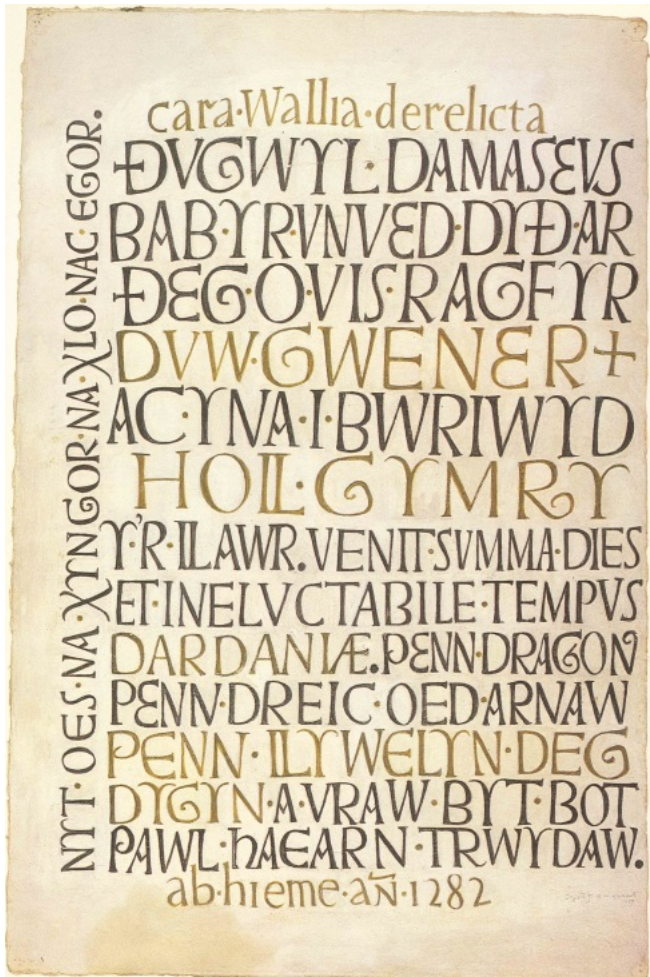 cara·Wallia·derelicta
ÐVGWYL·DAMASEVS
BABYR·VNVED·DYÐ·AR
ÐEG·O·VIS·RAGFYR
DVW·GWENER+
AC·YNA·I·BWRIWYD
HOLL·GYMRY
Y'R·LLAWR.VENIT·SVMMA·DIES
ET·INELVCTABILE·TEMPVS
DARDANIÆ.PENN·DRAGON
PENN·DREIC·OED·ARNAW
PENN·LLYWELYN·DEG
DYGYN·A·VRAW·BYT·BOT
PAWL·hAEARN·TRWYDAW.
ab·hieme·añ·1282
NYT·OES·NA·XYNGOR·NA·XLO·NAC·EGOR.